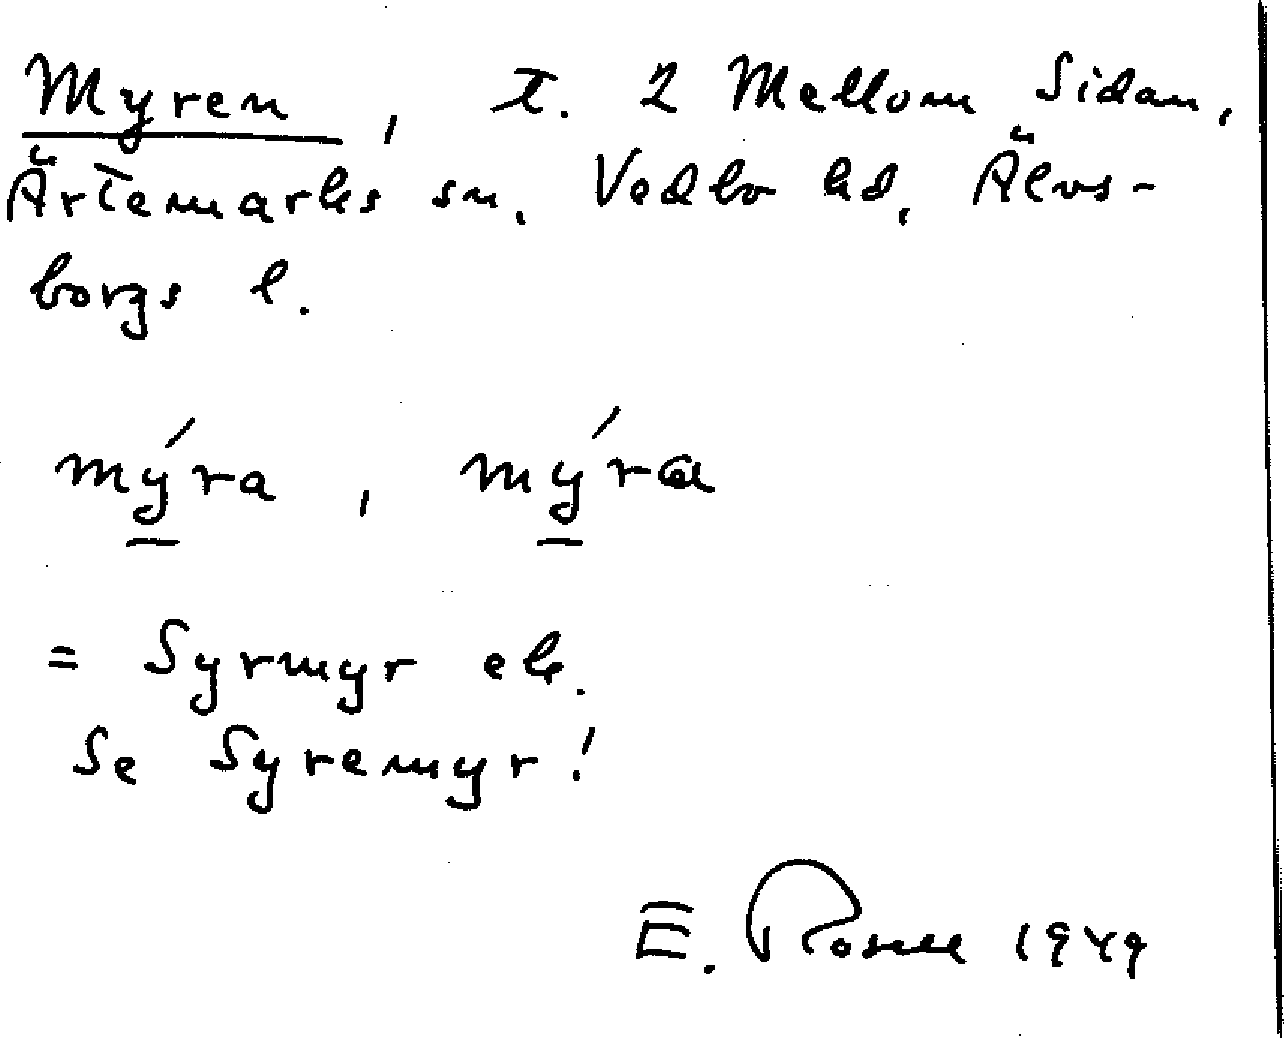 Myren, t. 2 Mellom Sidan,
Ärtemarks sn, Vedbo hd, Älvs-
borgs l.
mýra, mýrɑ
= Syrmyr el.
Se Syremyr!
E. Rosell 1949